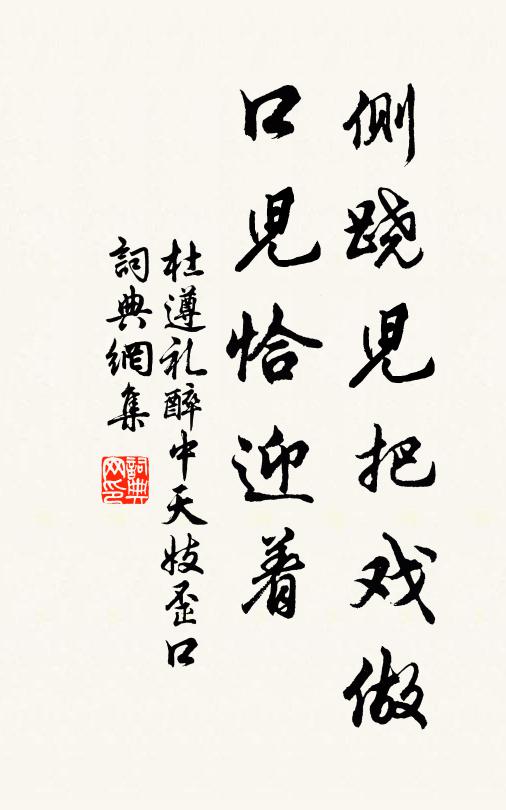 側跷児把戏做
口児恰迎着
杜遵礼醉中天妓歪口
詞典網集
詞典网印